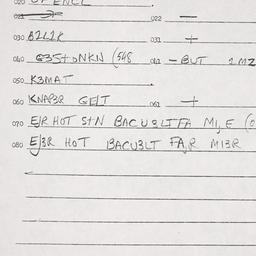 020 OPENCL
021
022 —
030 B2L2R
031 +
040 G3St DNKN (548
041 — BUT 1MZ
050 K3MAT
060 KNAP3R GEIT
061 +
070 EJR HOT StN BACU3LTFA MI, E (0
080 EJ3R HOT BACU3LT FA,R MI3R